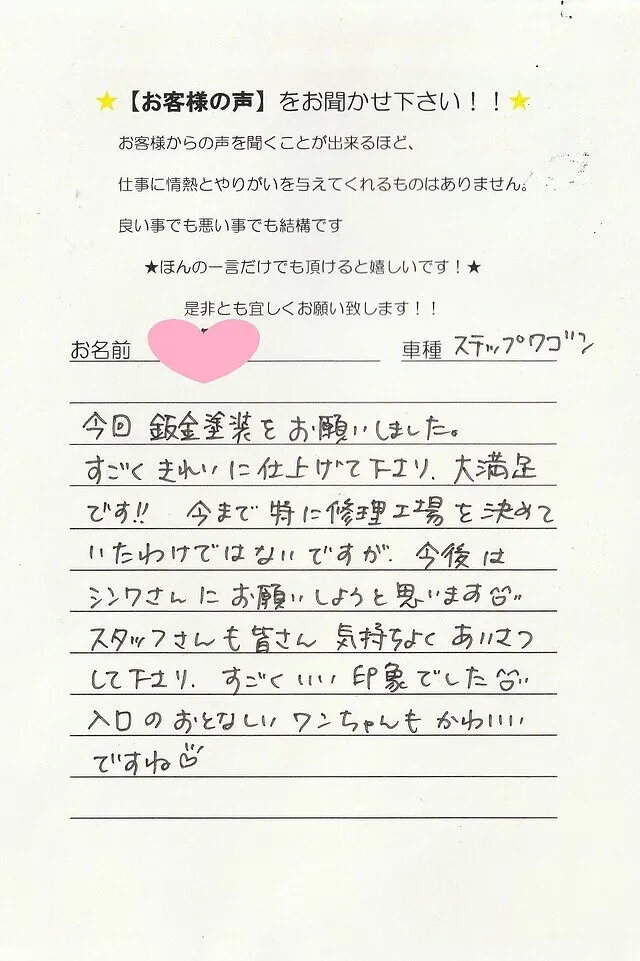 ★【お客様の声】をお聞かせ下さい！！★
お客様からの声を聞くことが出来るほど、
仕事に情熱とやりがいを与えてくれるものはありません。
良い事でも悪い事でも結構です
★ほんの一言だけでも頂けると嬉しいです！★
是非とも宜しくお願い致します！！
お名前 車種 ステップワゴン
今回 鈑金塗装をお願いしました。
すごくきれいに仕上げて下さり、大満足
です!! 今まで特に修理工場を決めて
いたわけではないですが、今後は
シンワさんにお願いしようと思います
スタッフさんも皆さん 気持ちよくあいさつ
して下さり、すごくいい印象でした
入口のおとなしいワンちゃんもかわいい
ですね♡